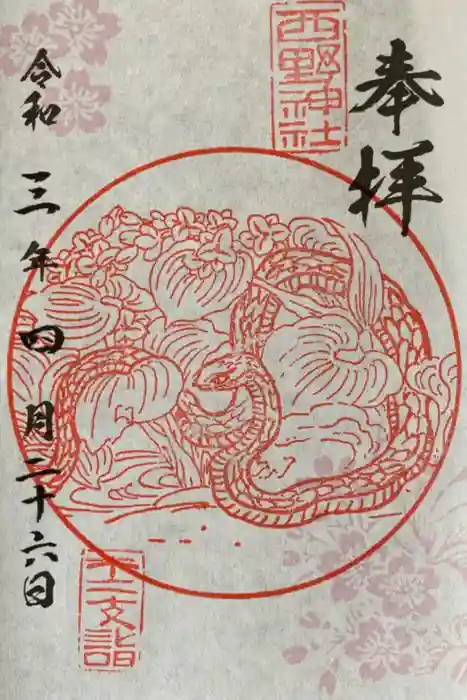 奉拝
西野神社
令和三年四月二十六日
十二支詣